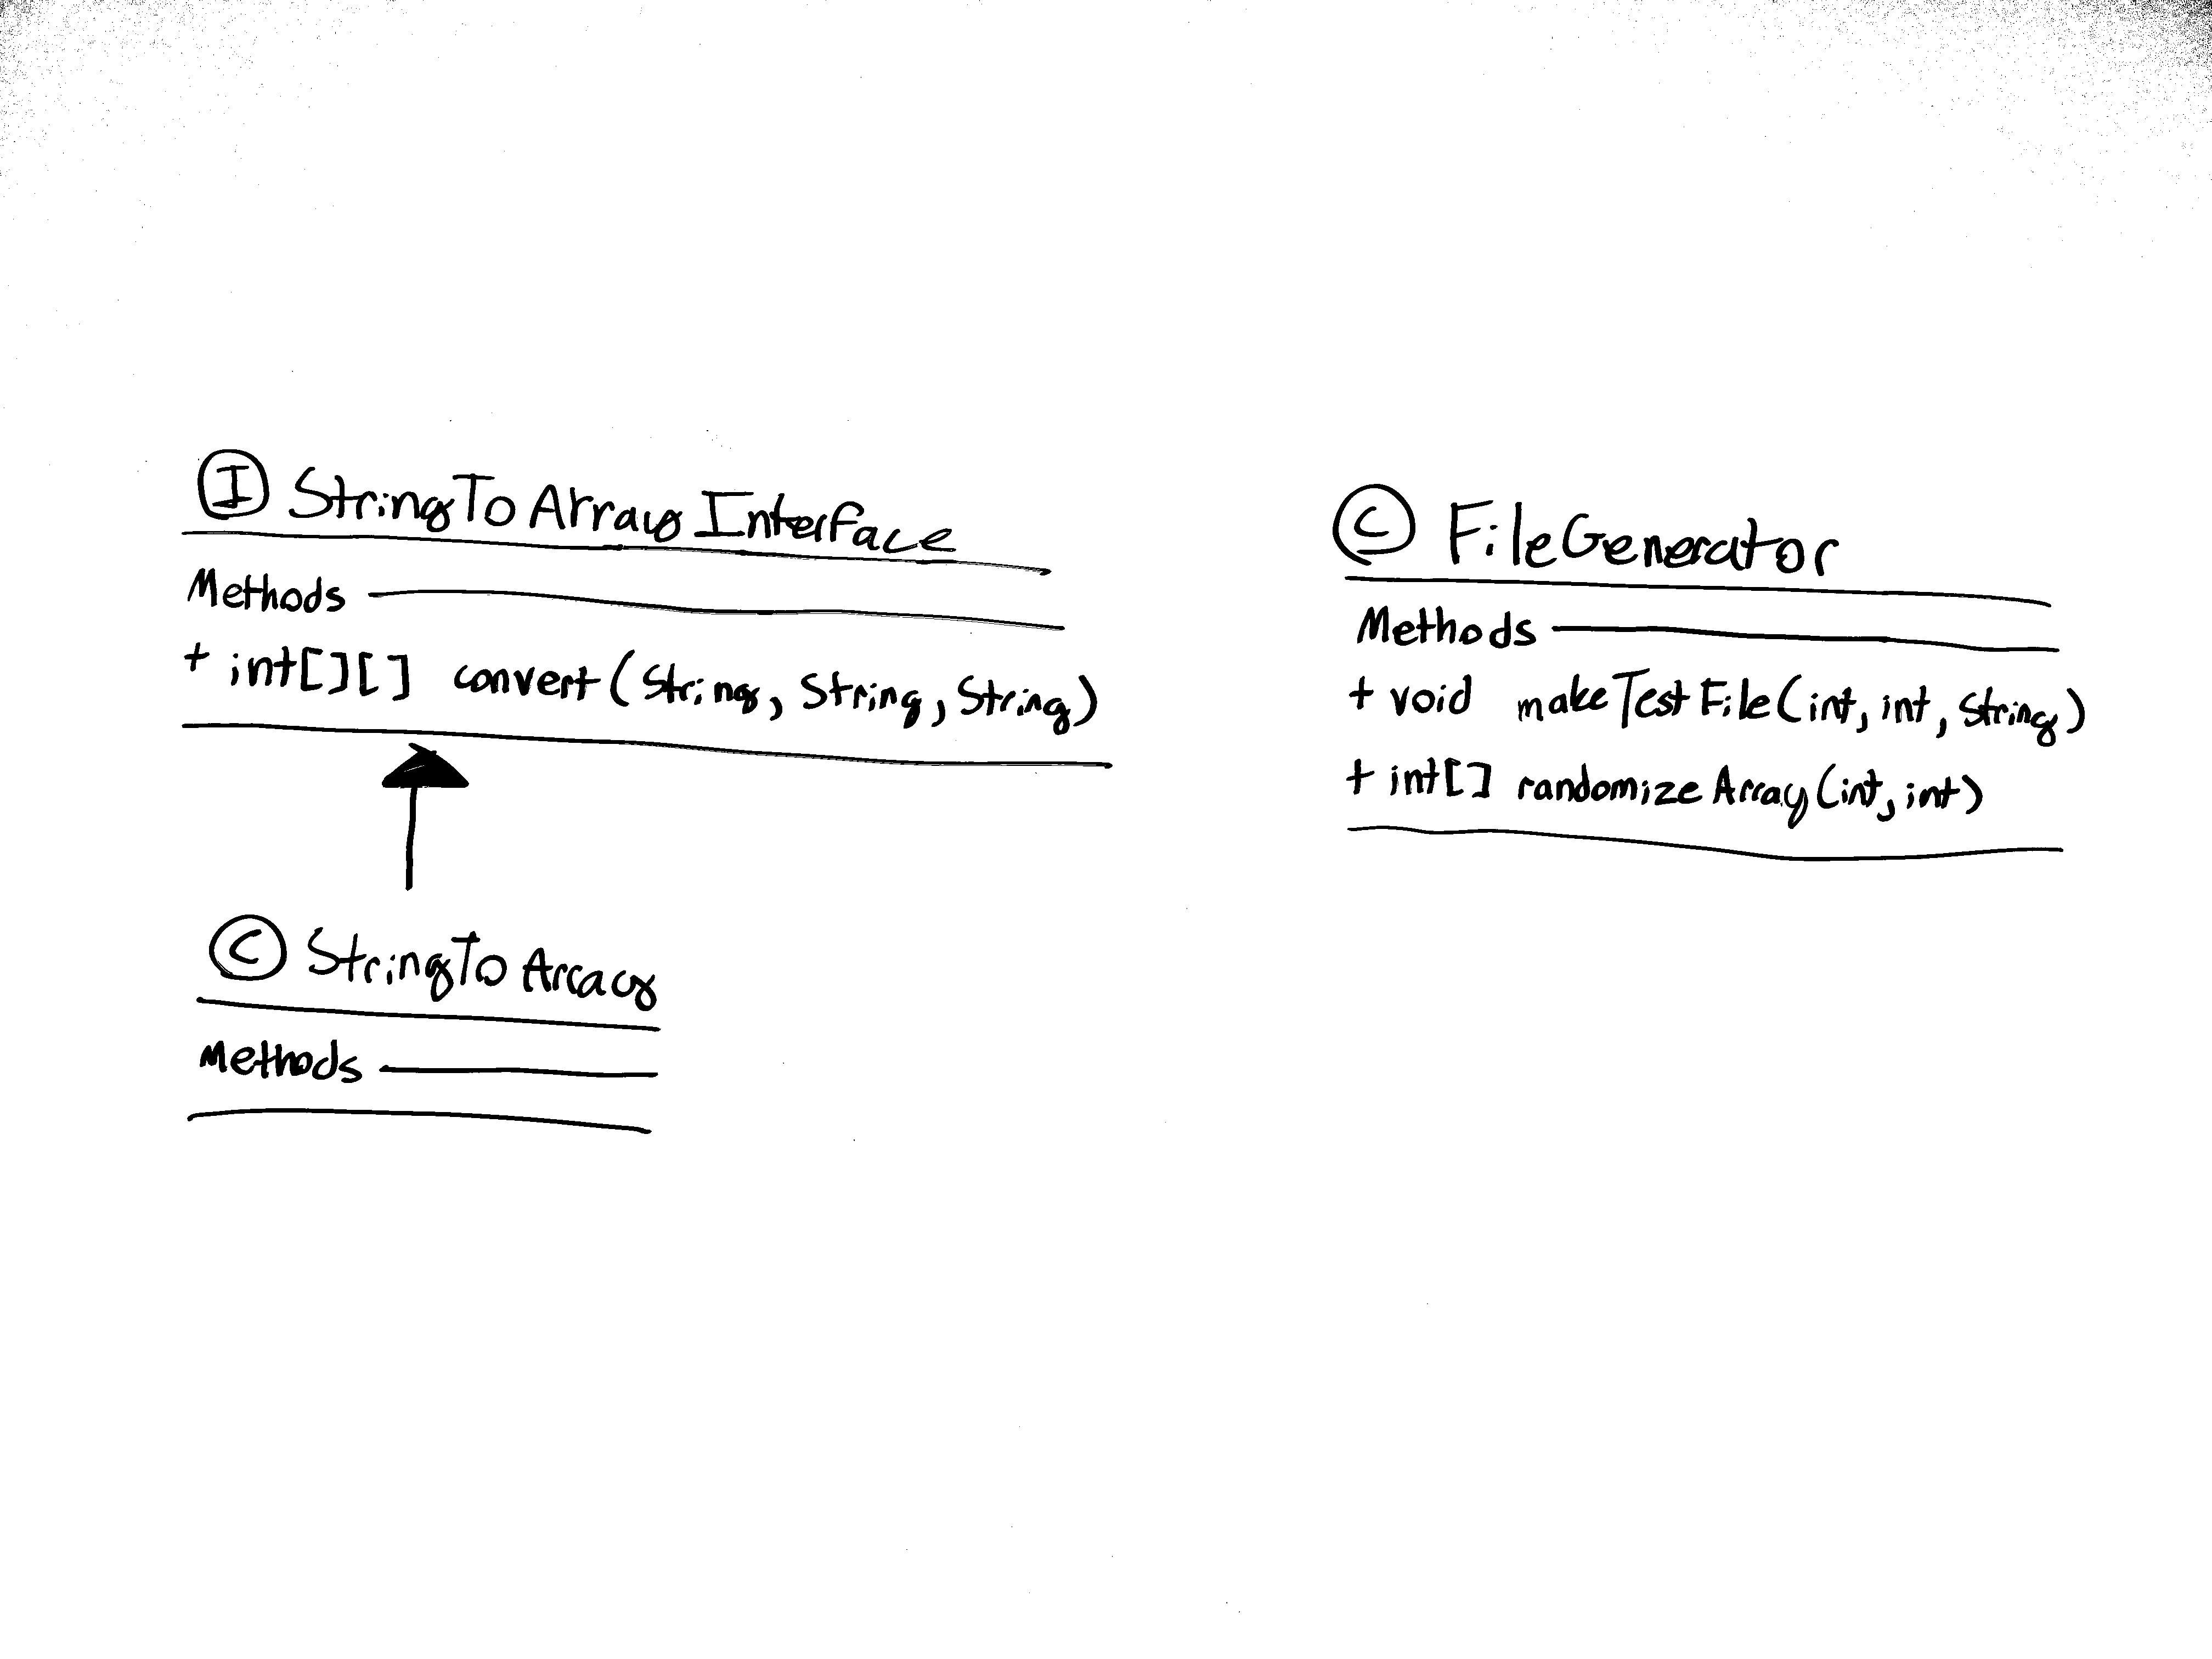 I StringToArrayInterface
Methods
+ int[][] convert(String, String, String)
C StringToArray
Methods
C FileGenerator
Methods
+ void makeTestFile(int, int, String)
+ int[] randomizeArray(int, int)